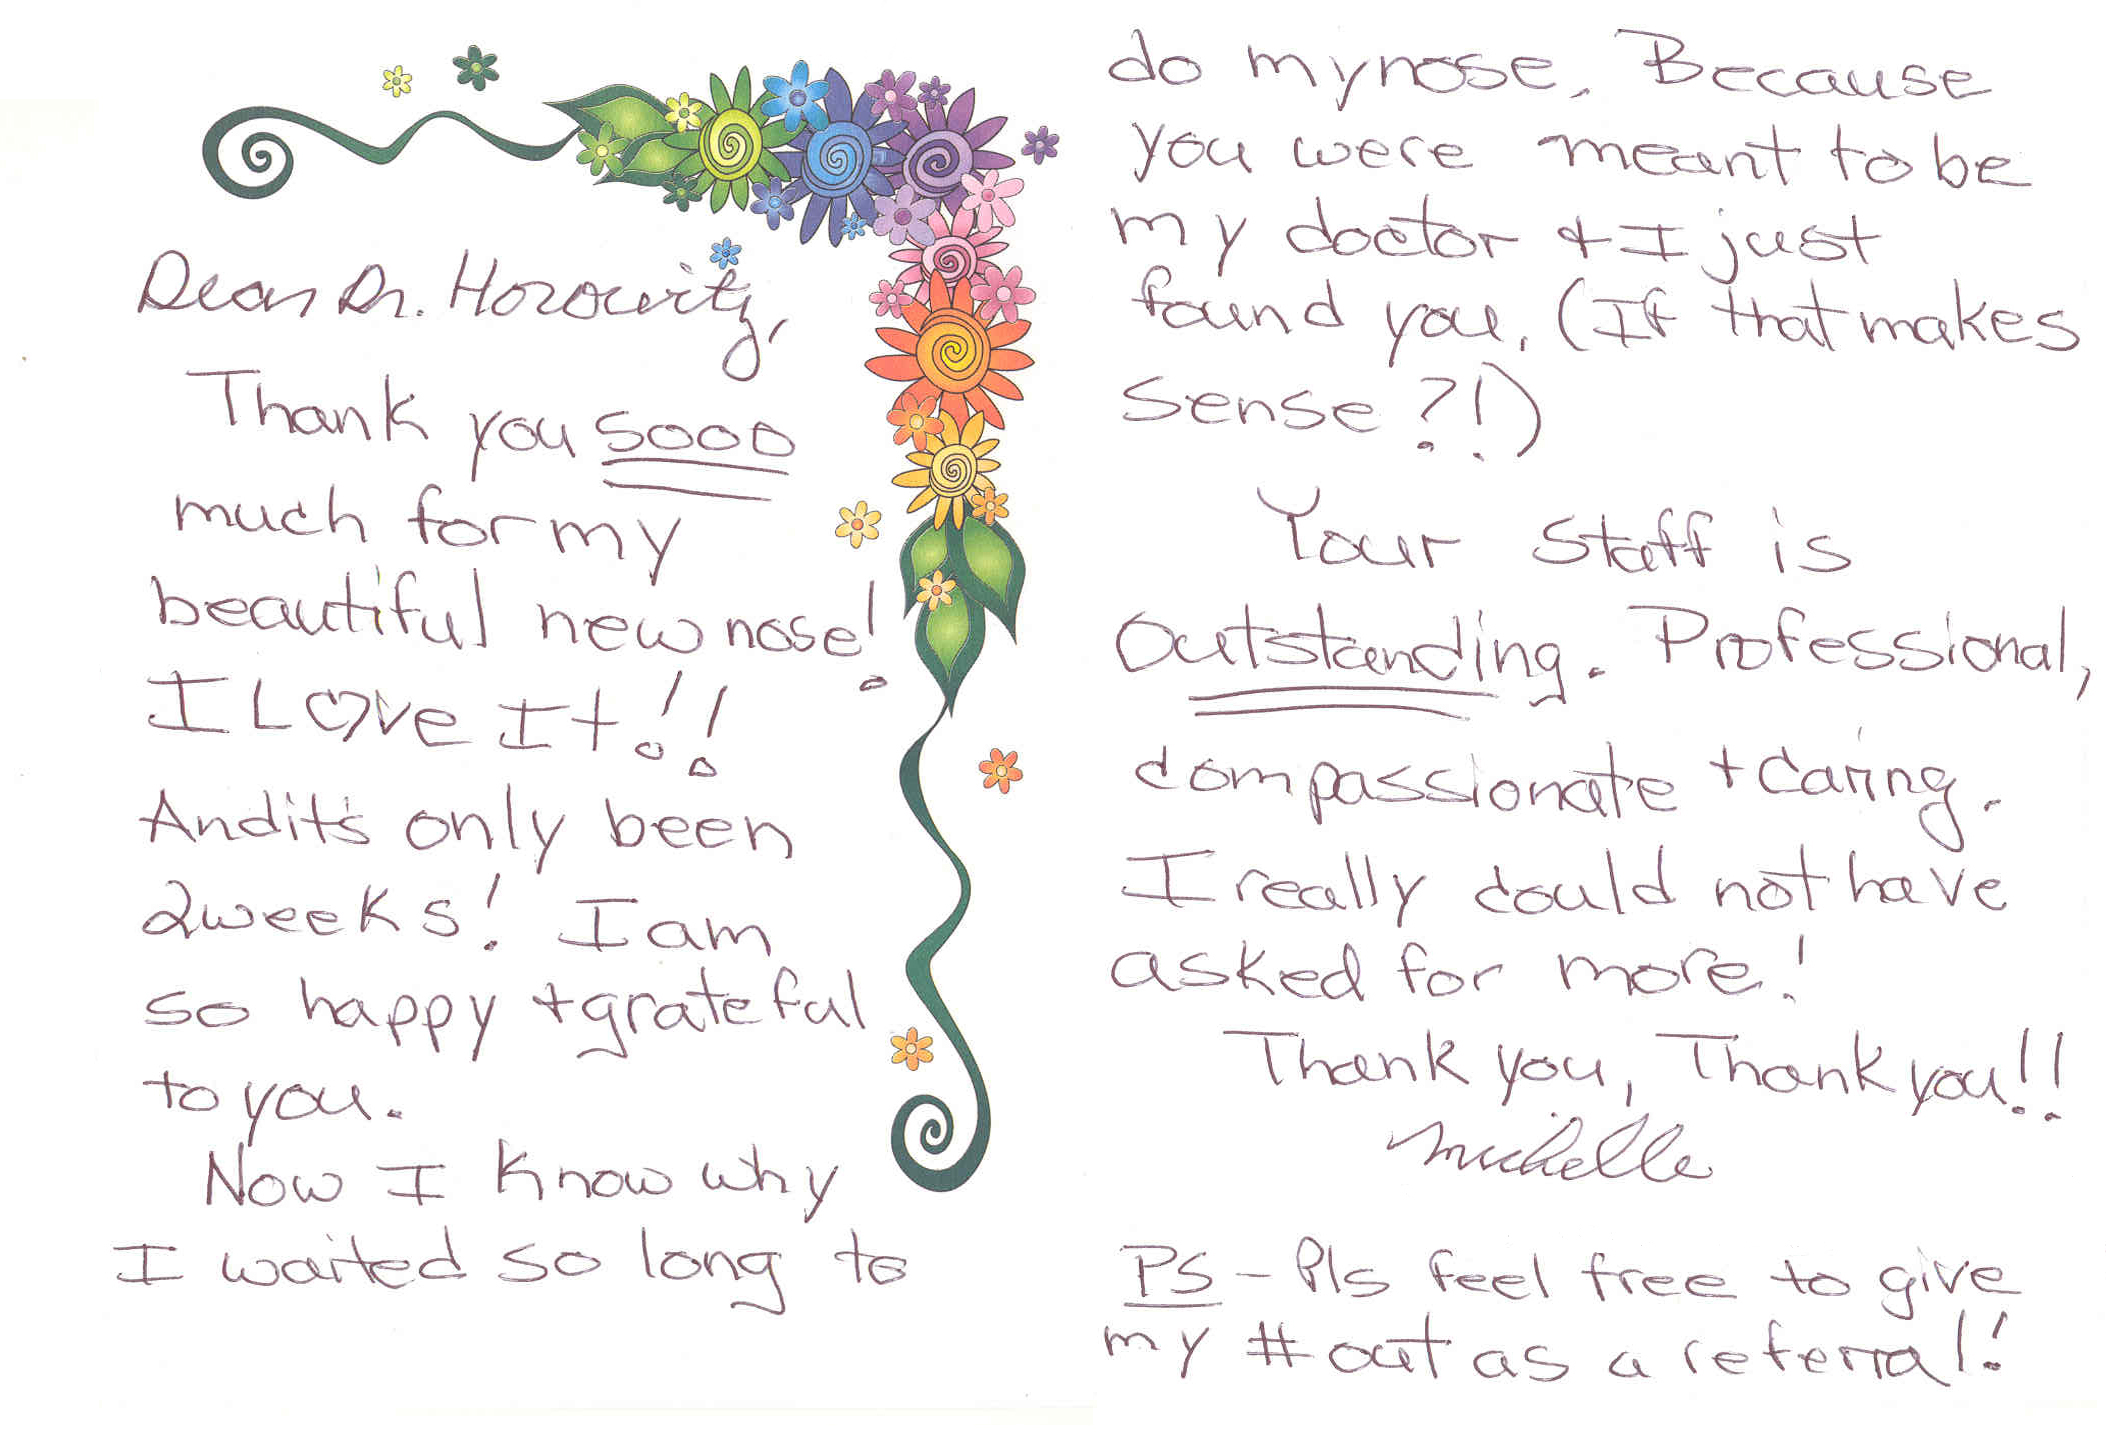 Dear Dr. Horowitz,
Thank you sooo
much for my
beautiful new nose!
I Love It!!
And it's only been
2 weeks! I am
so happy + grateful
to you.
Now I know why
I waited so long to
do my nose. Because
you were meant to be
my doctor + I just
found you. (If that makes
sense?!)
Your staff is
Outstanding. Professional,
compassionate + caring.
I really could not have
asked for more!
Thank you, Thank you!!
Michelle
PS - Pls feel free to give
my # out as a referral!